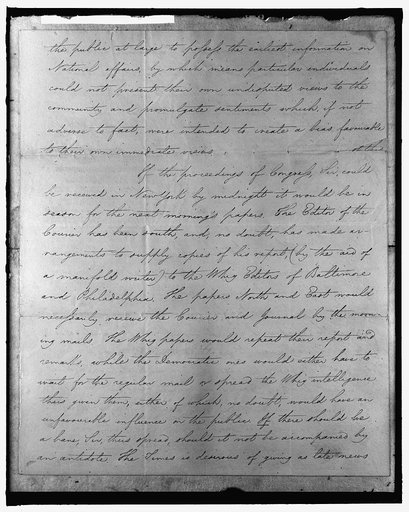 the public at large to possess the earliest information on
National affairs, by which means particular individuals
could not present their own undisputed views to the
community and promulgate sentiments which, if not
adverse to fact, were intended to create a bias favourable
to their own immediate views.
If the proceedings of Congress, Sir, could
be received in New York by midnight it would be in
season for the next morning's papers. The Editor of the
Courier has been south, and, no doubt, has made ar-
rangements to supply copies of his report, (by the aid of
a manifold writer) to the Whig Editors of Baltimore
and Philadelphia. The papers North and East would
necessarily receive the Courier and Journal by the morn-
ing mails. The Whig papers would repeat their report and
remarks, while the Democratic ones would either have to
wait for the regular mail or spread the Whig intelligence
thus given them, either of which, no doubt, would have an
unfavourable influence on the public. If there should be
a bane, Sir, thus spread, should it not be accompanied by
an antidote. The Times is desirous of giving as late news